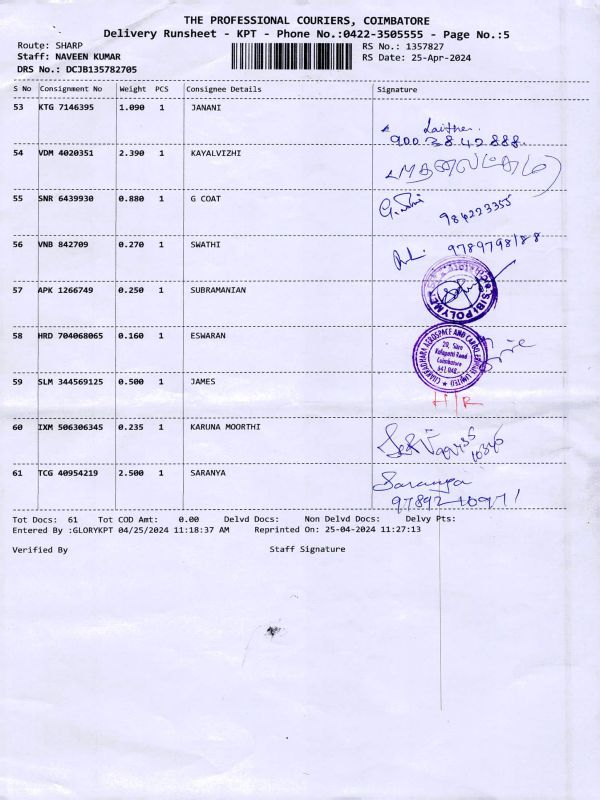 THE PROFESSIONAL COURIERS, COIMBATORE
Delivery Runsheet - KPT - Phone No.:0422-3505555 - Page No.:5
Route: SHARP
RS No.: 1357827
Staff: NAVEEN KUMAR
RS Date: 25-Apr-2024
DRS No.: DCJB135782705
S No Consignment No Weight PCS Consignee Details Signature
53 KTG 7146395 1.090 1 JANANI
9003842888
54 VDM 4020351 2.390 1 KAYALVIZHI
55 SNR 6439930 0.880 1 G COAT
984223355
56 VNB 842709 0.270 1 SWATHI
9789798188
57 APK 1266749 0.250 1 SUBRAMANIAN
58 HRD 704068065 0.160 1 ESWARAN
CHAKRADHARA AEROSPACE AND CARGO PRIVATE LIMITED
Coimbatore
641 048
59 SLM 344569125 0.500 1 JAMES
H/R
60 IXM 506306345 0.235 1 KARUNA MOORTHI
61 TCG 40954219 2.500 1 SARANYA
Saranya
Tot Docs: 61 Tot COD Amt: 0.00 Delvd Docs: Non Delvd Docs: Delvy Pts:
Entered By :GLORYKPT 04/25/2024 11:18:37 AM Reprinted On: 25-04-2024 11:27:13
Verified By Staff Signature